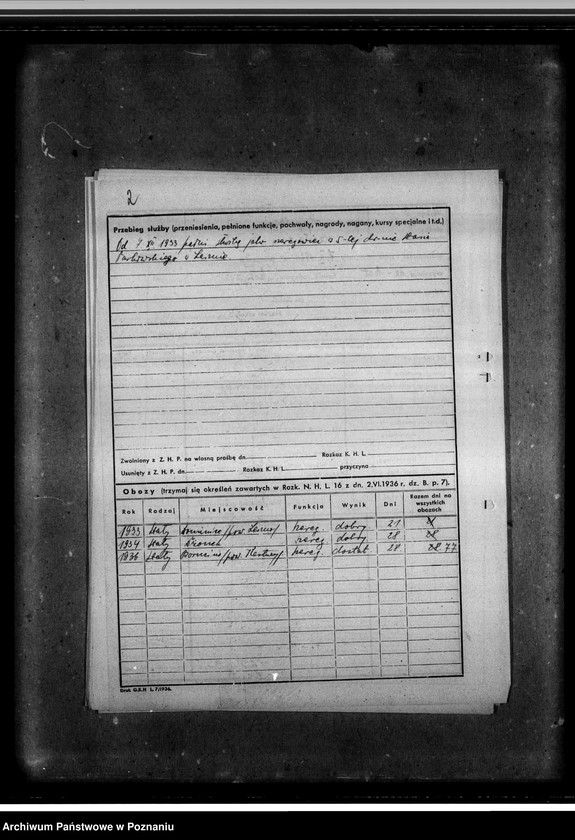 2
Przebieg służby (przeniesienia, pełnione funkcje, pochwały, nagrody, nagany, kursy specjalne i t.d.)
Od 7 XII 1933 pełni służbę jako szeregowiec w 5-tej drużynie
w Lesznie
Zwolniony z Z. H. P. na własną prośbę dn. Rozkaz K. H. L.
Usunięty z Z. H. P. dn. Rozkaz K. H. L. przyczyna
Obozy (trzymaj się określeń zawartych w Rozk. N. H. L. 16 z dn. 2.VI.1936 r, dz. B. p. 7).
Rok Rodzaj Miejscowość Funkcja Wynik Dni Razem dni na wszystkich obozach
1933 stały Dominice/pow. Leszno/ szereg. dobry 21
1934 stały szereg. dobry 28
1936 stały /pow. szereg. dostat. 28 77
Druk O.Z.H L. 7/1936.
Archiwum Państwowe w Poznaniu